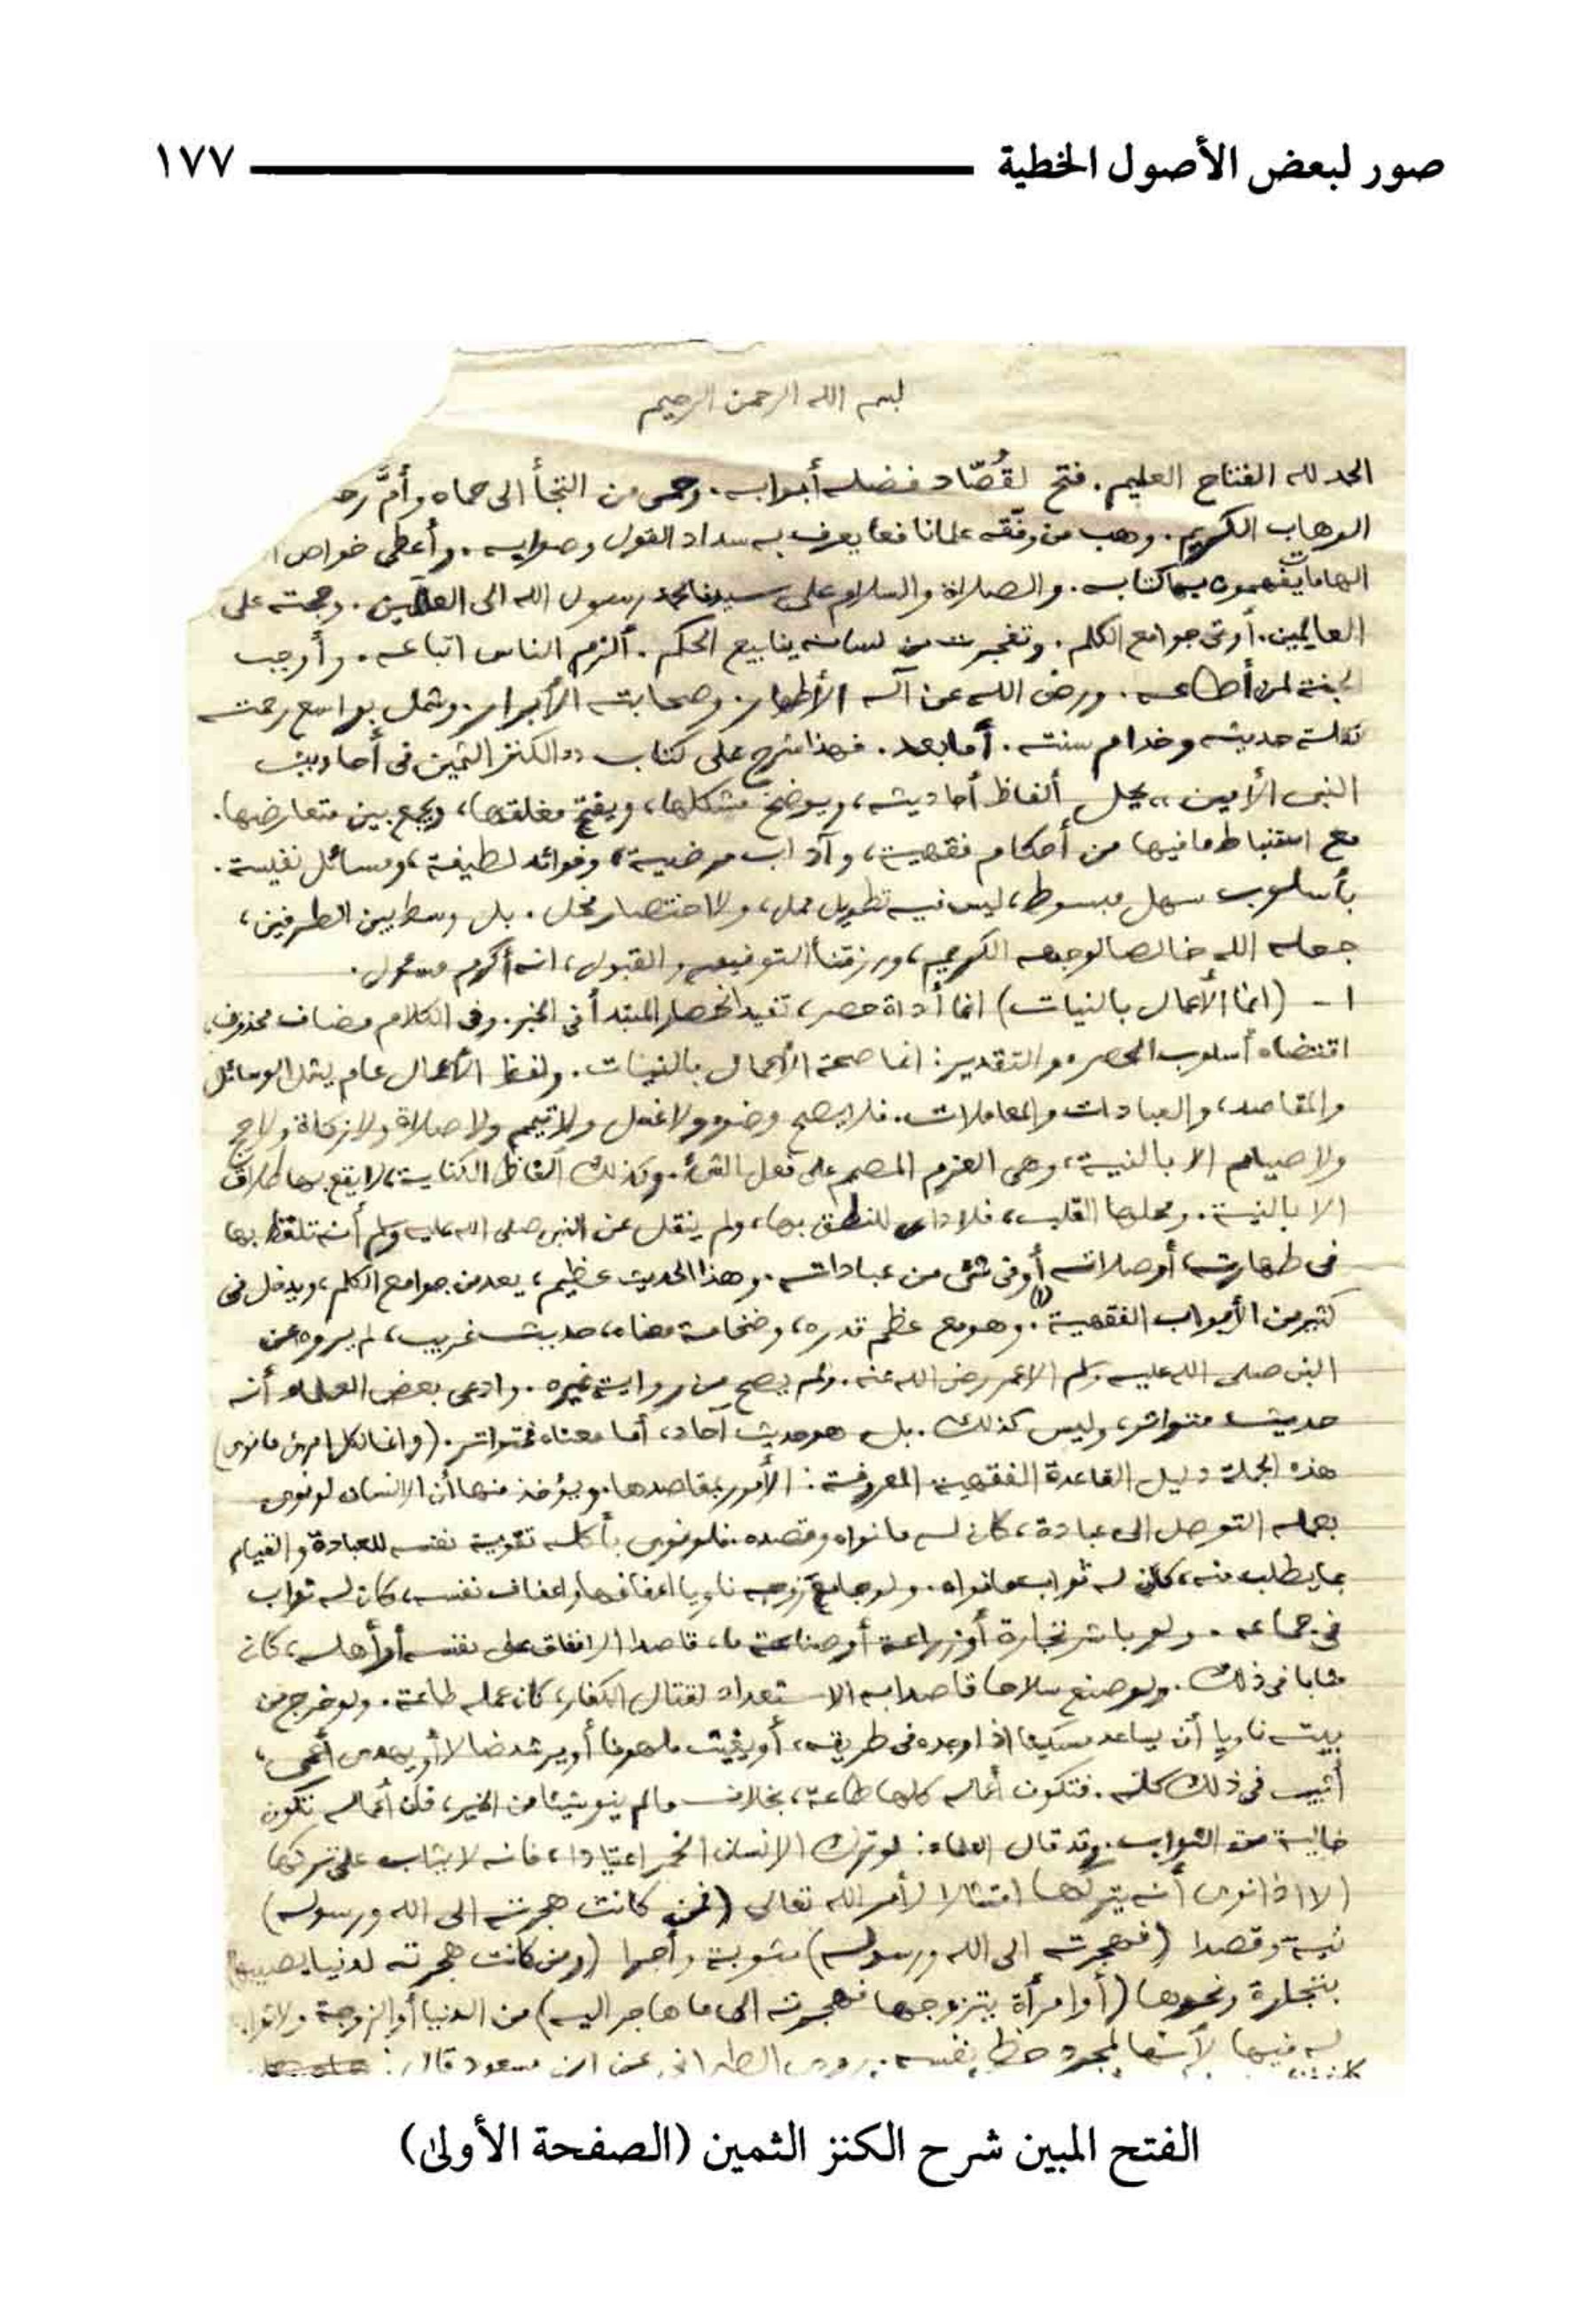 صور لبعض الأصول الخطية ١٧٧
بسم الله الرحمن الرحيم
الحمد لله الفتاح العليم. فتح لقُصّاد فضله أبوابه. وحمى من التجأ الى حماه وأمَّ
الوهاب الكريم. وهب من وفّقه علما نافعا يعرف به سداد القول وصوابه. وأعطى خواص
الهامات يفهمون بها كتابه. والصلاة والسلام على سيدنا محمد رسول الله الى العالمين. وحجته على
العالمين. أوتى جوامع الكلم. وتفجرت من لسانه ينابيع الحكم. ألزم الناس اتباعه. وأوجب
الجنة لمن أطاعه. ورضى الله عن آله الأطهار. وصحابته الأبرار. وشمل بواسع رحمته
نقلة حديثه وخدام سنته. أما بعد. فهذا شرح على كتاب "الكنز الثمين فى أحاديث
النبى الأمين" يحل ألفاظ أحاديثه، ويوضح مشكلها، ويفتح مغلقها، ويجمع بين متعارضها.
مع استنباط ما فيها من أحكام فقهية، وآداب مرضية، وفوائد لطيفة، ومسائل نفيسة.
بأسلوب سهل مبسوط، ليس فيه تطويل ممل، ولا اختصار مخل. بل وسط بين الطرفين،
جعله الله خالصا لوجهه الكريم، ورزقنا التوفيق والقبول، انه أكرم مسؤول.
١ - (انما الأعمال بالنيات) انما أداة حصر، تفيد انحصار المبتدأ فى الخبر. وفى الكلام مضاف محذوف،
اقتضاه أسلوب الحصر، والتقدير: انما صحة الأعمال بالنيات. ولفظ الأعمال عام يشمل الوسائل
والمقاصد، والعبادات والمعاملات. فلا يصح وضوء ولا غسل ولا تيمم ولا صلاة ولا زكاة ولا حج
ولا صيام الا بالنية، وهى العزم المصمم على فعل الشئ. وكذلك ألفاظ الكناية، لا يقع بها طلاق
الا بالنية. ومحلها القلب، فلا داعى للنطق بها، ولم ينقل عن النبى صلى الله عليه وسلم أنه تلفظ بها
فى طهارته، أو صلاته أو فى شئ من عباداته. وهذا الحديث عظيم، يعد من جوامع الكلم، ويدخل فى
كثير من الأبواب الفقهية (١). وهو مع عظم قدره، وضخامة معناه، حديث غريب، لم يروه عن
النبى صلى الله عليه وسلم الا عمر رضى الله عنه. ولم يصح من رواية غيره. وادعى بعض العلماء أنه
حديث متواتر، وليس كذلك. بل هو حديث آحاد، أما معناه فمتواتر. (وانما لكل امرئ ما نوى)
هذه الجملة دليل القاعدة الفقهية المعروفة: الأمور بمقاصدها. ويؤخذ منها أن الانسان لو نوى
بعمله التوصل الى عبادة، كان له ما نواه وقصده. فلو نوى بأكله تقوية نفسه للعبادة والقيام
بما يطلب منه، كان له ثواب ما نواه. ولو جامع زوجه ناويا اعفافها واعفاف نفسه، كان له ثواب
فى جماعه. ولو باشر تجارة أو زراعة أو صناعة ما، قاصدا الانفاق على نفسه أو أهله، كان
مثابا فى ذلك. ولو صنع سلاحا قاصدا به الاستعداد لقتال الكفار، كان عمله طاعة. ولو خرج من
بيته ناويا أن يساعد مسكينا اذا وجده فى طريقه، أو يغيث ملهوفا أو يرشد ضالا أو يهدى أعمى،
أثيب فى ذلك كله. فتكون أعماله كلها طاعة، بخلاف ما لم ينو شيئا من الخير، فان أعماله تكون
خالية من الثواب. وقد قال العلماء: لو ترك الانسان الخمر اعتيادا، فانه لا يثاب على تركها
الا اذا نوى أنه يتركها امتثالا لأمر الله تعالى (فمن كانت هجرته الى الله ورسوله)
نية وقصدا (فهجرته الى الله ورسوله) مثوبة وأجرا (ومن كانت هجرته لدنيا يصيبها)
بتجارة ونحوها (أو امرأة يتزوجها فهجرته الى ما هاجر اليه) من الدنيا أو الزوجة ولا ثواب
له فيها لأنها لمجرد حظ نفسه. روى الطبرانى عن ابن مسعود قال:
الفتح المبين شرح الكنز الثمين (الصفحة الأولى)